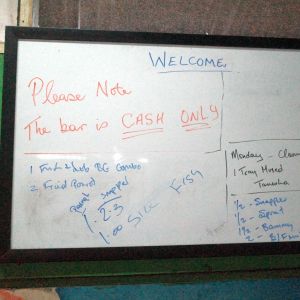 WELCOME
Please Note
The bar is CASH ONLY
1 Fish & Lob BG Combo
2 Fried
Snapper
2-3
1.00 Size Fish
Monday - Closed
1 Tray Mixed
1/2 - Snapper
1/2 - Sprat
1 1/2 - Bammy
2 -